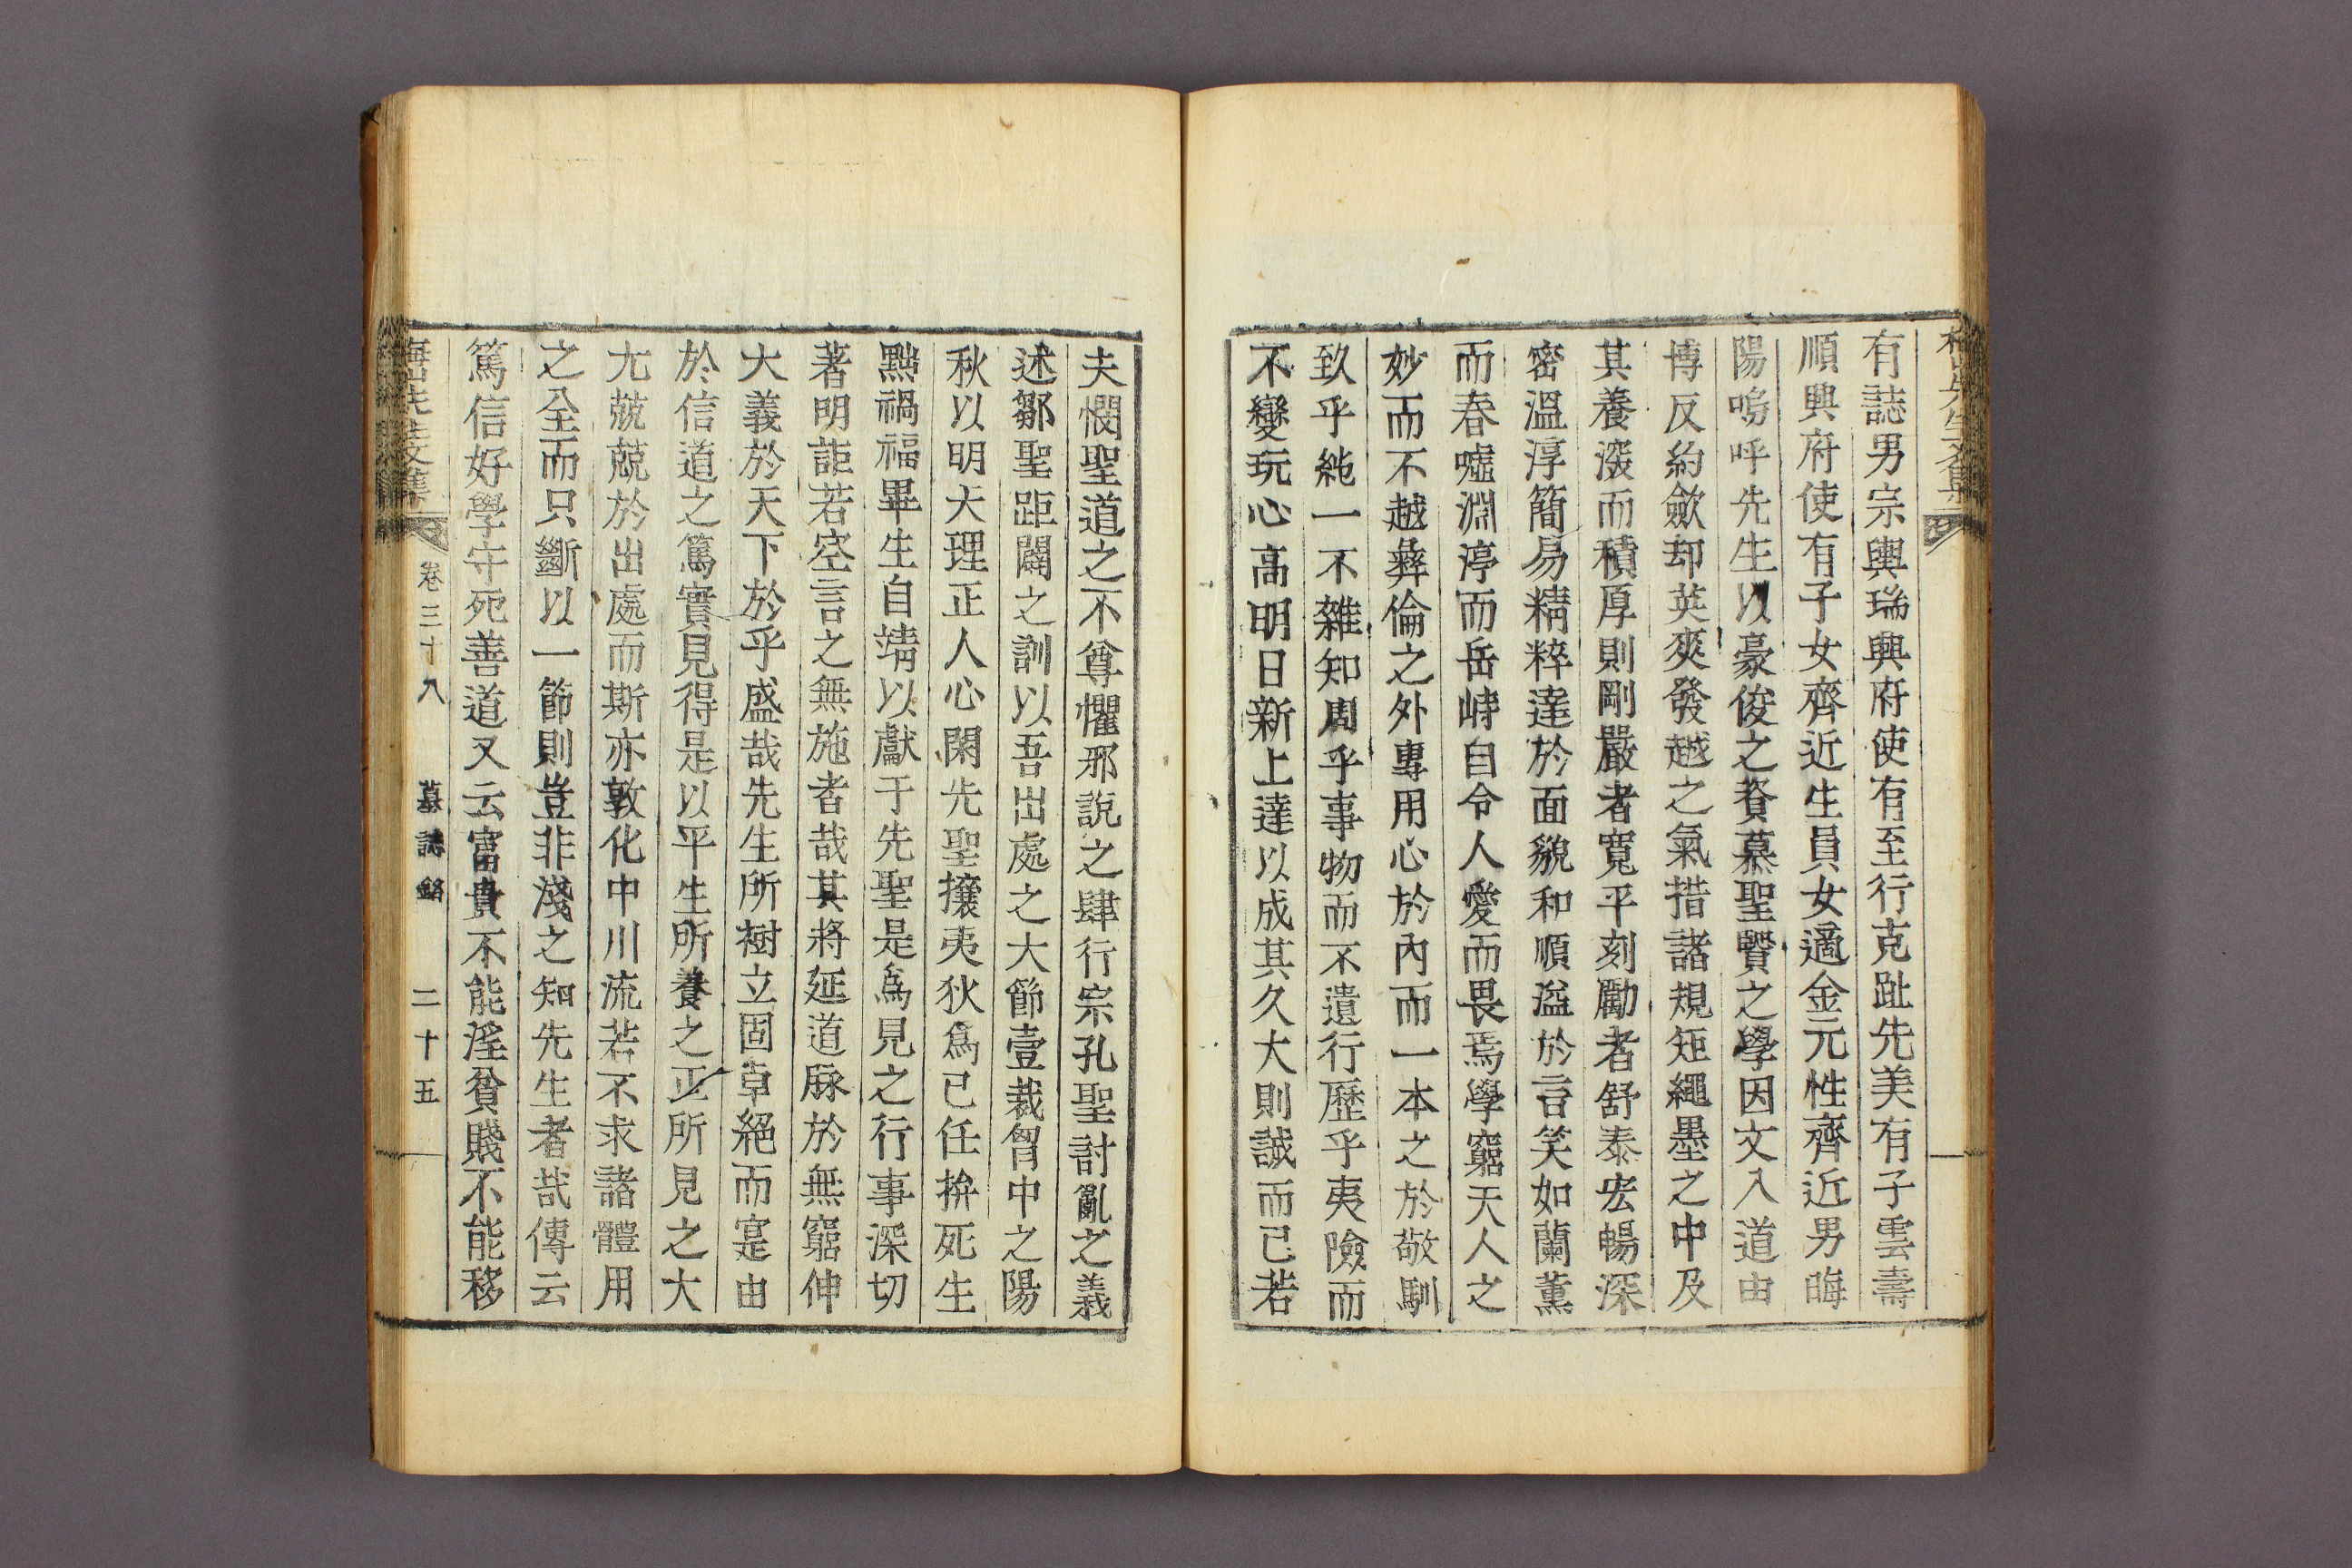 有誌男宗輿瑞興府使有至行克趾先美有子雲壽
順興府使有子女齊近生員女適金元性齊近男晦
陽嗚呼先生以豪俊之資慕聖賢之學因文入道由
博反約歛却英爽發越之氣措諸規矩繩墨之中及
其養深而積厚則剛嚴者寬平刻勵者舒泰宏暢深
密溫淳簡易精粹達於面貌和順溢於言笑如蘭薰
而春噓淵渟而岳峙自令人愛而畏焉學窮天人之
妙而不越彝倫之外專用心於內而一本之於敬馴
致乎純一不雜知周乎事物而不遺行歷乎夷險而
不變玩心高明日新上達以成其久大則誠而已若
夫憫聖道之不尊懼邪說之肆行宗孔聖討亂之義
述鄒聖距闢之訓以吾出處之大節壹裁胷中之陽
秋以明大理正人心閑先聖攘夷狄爲己任拚死生
點禍福畢生自靖以獻于先聖是爲見之行事深切
著明詎若空言之無施者哉其將延道脉於無窮伸
大義於天下於乎盛哉先生所樹立固卓絕而寔由
於信道之篤實見得是以平生所養之正所見之大
尤兢兢於出處而斯亦敦化中川流若不求諸體用
之全而只斷以一節則豈非淺之知先生者哉傳云
篤信好學守死善道又云富貴不能淫貧賤不能移
梅山先生文集 卷三十八 墓誌銘 二十五